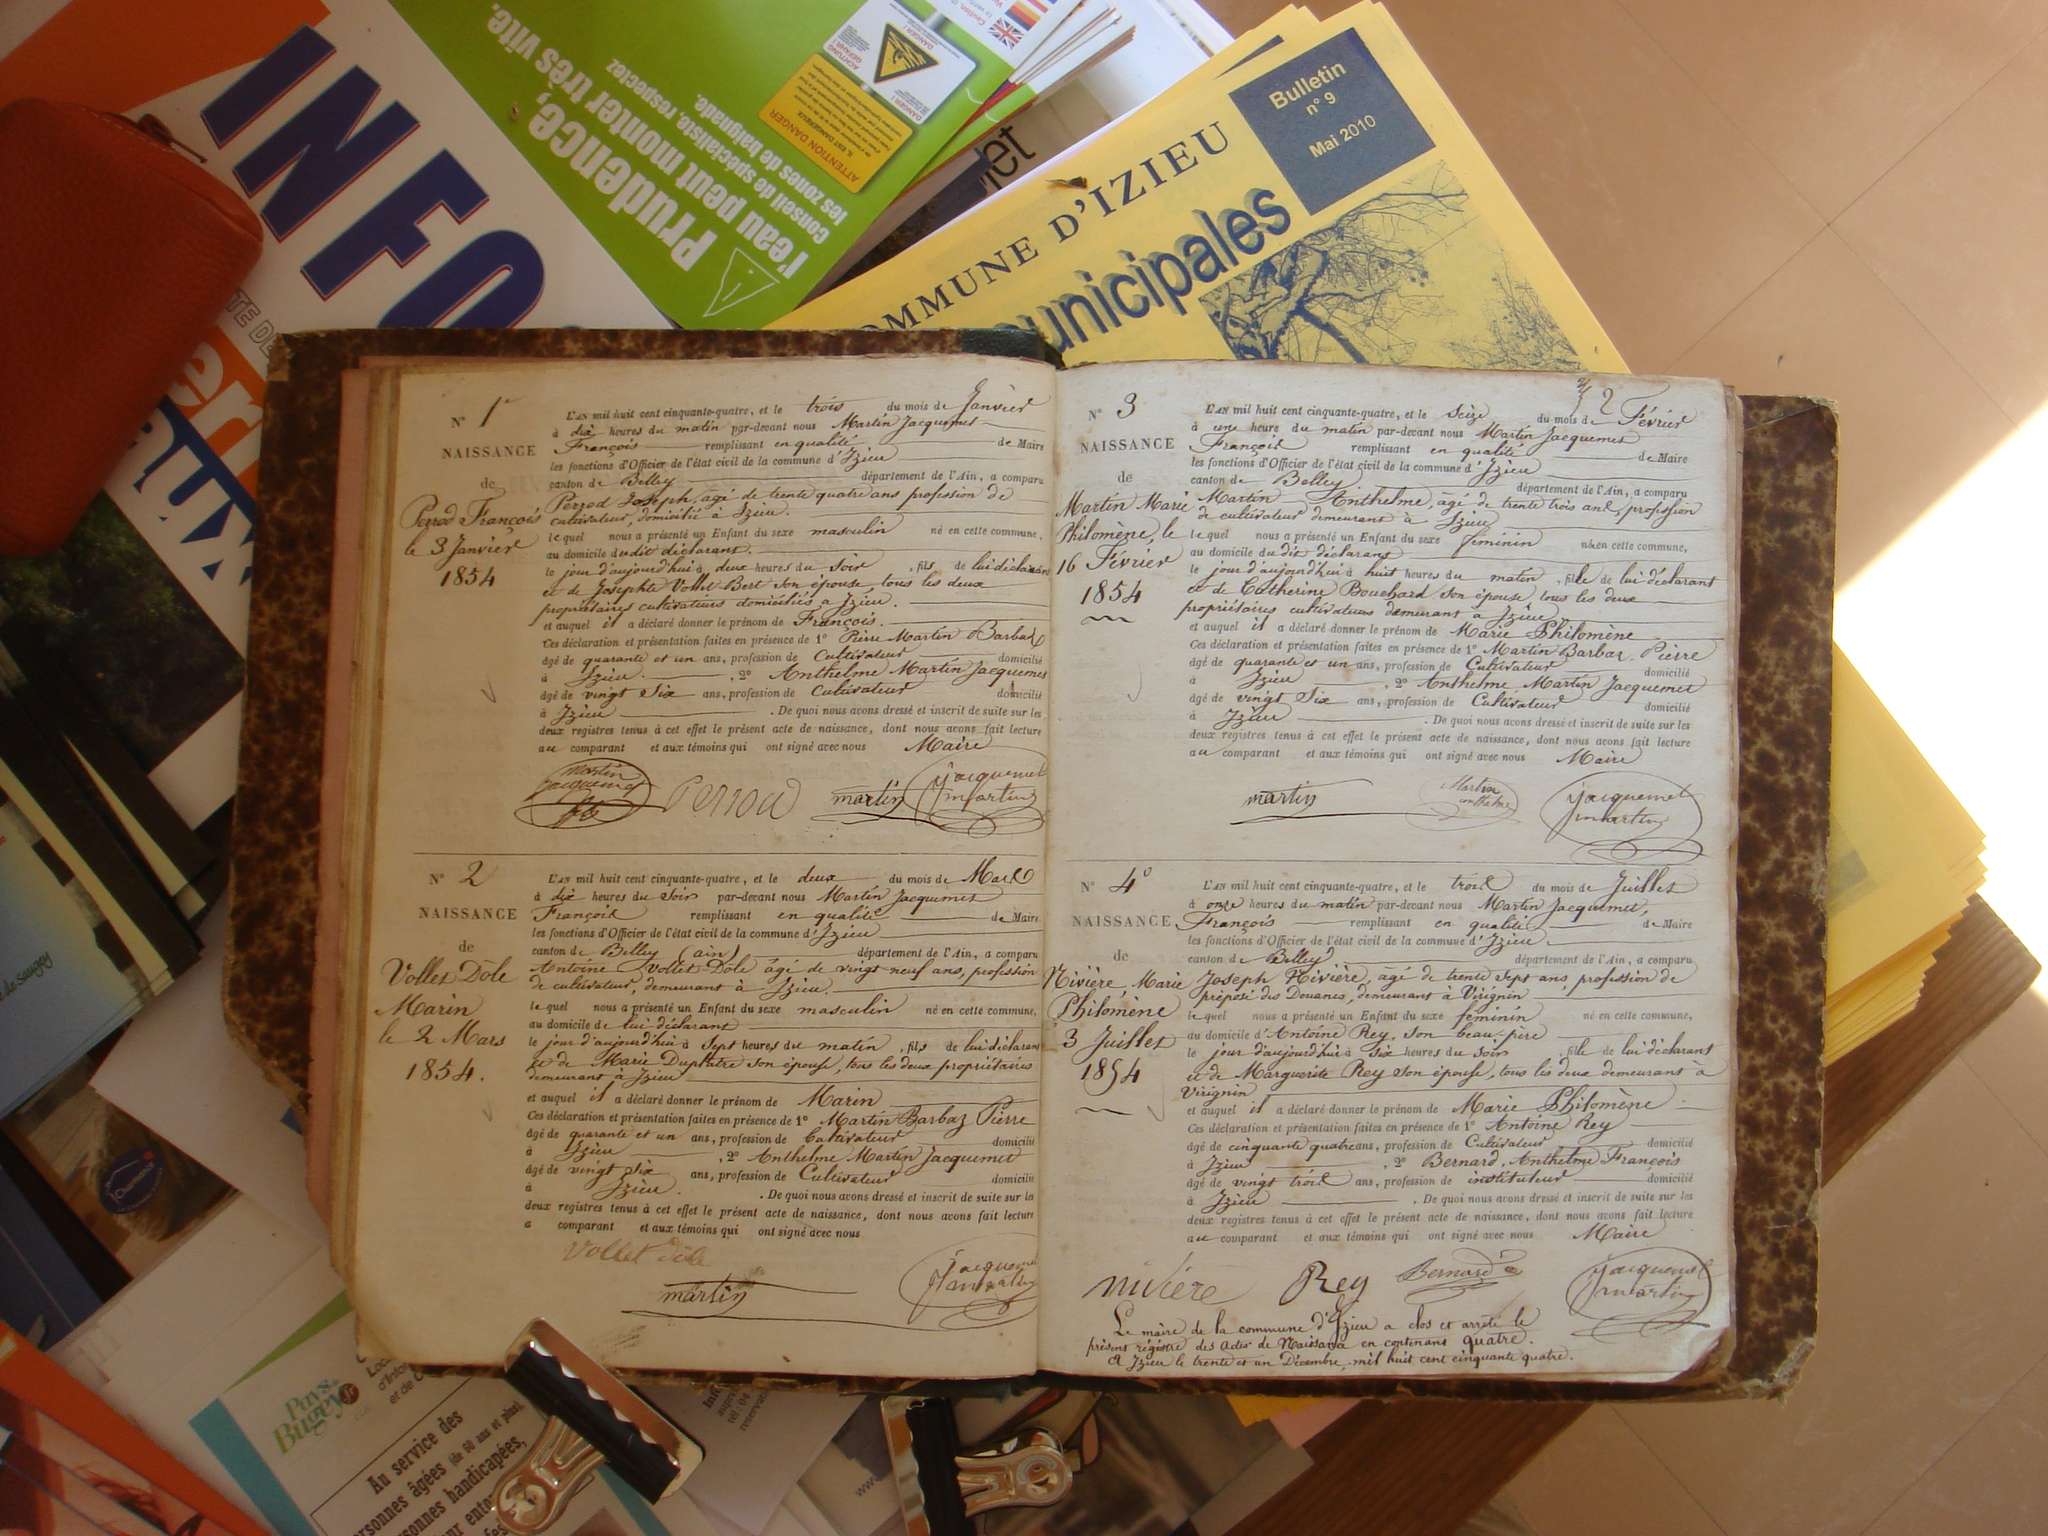 INFO
Prudence,
l'eau peut monter très vite.
Conseil de spécialiste, respectez
les zones de baignade.
ATTENTION DANGER
COMMUNE D'IZIEU
unicipales
Bulletin
n° 9
Mai 2010
N° 1
NAISSANCE
de
Perrod François
le 3 Janvier
1854
L'AN mil huit cent cinquante-quatre, et le trois du mois de Janvier
à dix heures du matin par-devant nous Martin Jacquemet
François remplissant en qualité de Maire
les fonctions d'Officier de l'état civil de la commune d'Izieu
canton de Belley département de l'Ain, a comparu
Perrod Joseph, agé de trente quatre ans profession de
cultivateur, domicilié à Izieu.
lequel nous a présenté un Enfant du sexe masculin né en cette commune,
au domicile du dit déclarant.
le jour d'aujourd'hui à deux heures du soir, fils de lui déclarant
et de Josephte Vollet Bert son épouse, tous les deux
propriétaires cultivateurs domiciliés a Izieu.
et auquel il a déclaré donner le prénom de François.
Ces déclaration et présentation faites en présence de 1° Pierre Martin Barbaz
âgé de quarante et un ans, profession de Cultivateur domicilié
à Izieu, 2° Anthelme Martin Jacquemet
âgé de vingt Six ans, profession de Cultivateur domicilié
à Izieu. De quoi nous avons dressé et inscrit de suite sur les
deux registres tenus à cet effet le présent acte de naissance, dont nous avons fait lecture
au comparant et aux témoins qui ont signé avec nous Maire
martin
jacquemet
Perrod
martin
jacquemet
martin
N° 2
NAISSANCE
de
Vollet Dôle
Marin
le 2 Mars
1854.
L'AN mil huit cent cinquante-quatre, et le deux du mois de Mars
à dix heures du Soir par-devant nous Martin Jacquemet
François remplissant en qualité de Maire
les fonctions d'Officier de l'état civil de la commune d'Izieu
canton de Belley (ain) département de l'Ain, a comparu
Antoine Vollet Dôle âgé de vingt neuf ans, profession
de cultivateur, demeurant à Izieu.
lequel nous a présenté un Enfant du sexe masculin né en cette commune,
au domicile de lui déclarant
le jour d'aujourd'hui à Sept heures du matin, fils de lui déclarant
et de Marie son épouse, tous les deux propriétaires
demeurant à Izieu
et auquel il a déclaré donner le prénom de Marin
Ces déclaration et présentation faites en présence de 1° Martin Barbaz Pierre
âgé de quarante et un ans, profession de Cultivateur domicilié
à Izieu, 2° Anthelme Martin Jacquemet
âgé de vingt Six ans, profession de Cultivateur domicilié
à Izieu. De quoi nous avons dressé et inscrit de suite sur la
deux registres tenus à cet effet le présent acte de naissance, dont nous avons fait lecture
a comparant et aux témoins qui ont signé avec nous
Vollet dôle
martin
jacquemet
martin
2
N° 3
NAISSANCE
de
Martin Marie
Philomène, le
16 Février
1854
L'AN mil huit cent cinquante-quatre, et le Seize du mois de Février
à une heure du matin par-devant nous Martin Jacquemet
François remplissant en qualité de Maire
les fonctions d'Officier de l'état civil de la commune d'Izieu
canton de Belley département de l'Ain, a comparu
Martin Anthelme, âgé de trente trois ans, profession
de cultivateur demeurant à Izieu
lequel nous a présenté un Enfant du sexe féminin né en cette commune,
au domicile du dit déclarant
le jour d'aujourd'hui à huit heures du matin, fille de lui déclarant
et de Catherine Bouchard son épouse, tous les deux
propriétaires cultivateurs demeurant à Izieu
et auquel il a déclaré donner le prénom de Marie Philomène
Ces déclaration et présentation faites en présence de 1° Martin Barbaz Pierre
âgé de quarante et un ans, profession de Cultivateur domicilié
à Izieu, 2° Anthelme Martin Jacquemet
âgé de vingt Six ans, profession de Cultivateur domicilié
à Izieu. De quoi nous avons dressé et inscrit de suite sur les
deux registres tenus à cet effet le présent acte de naissance, dont nous avons fait lecture
au comparant et aux témoins qui ont signé avec nous Maire
martin
Martin
anthelme
jacquemet
martin
N° 4°
NAISSANCE
de
Nivière Marie
Philomène
3 Juillet
1854
L'AN mil huit cent cinquante-quatre, et le trois du mois de Juillet
à onze heures du matin par-devant nous Martin Jacquemet,
François remplissant en qualité de Maire
les fonctions d'Officier de l'état civil de la commune d'Izieu
canton de Belley département de l'Ain, a comparu
Joseph Nivière, âgé de trente Sept ans, profession de
préposé des Douanes, demeurant à Virignin
lequel nous a présenté un Enfant du sexe féminin né en cette commune,
au domicile d'Antoine Rey, son beau-père
le jour d'aujourd'hui à six heures du soir, fille de lui déclarant
et de Marguerite Rey son épouse, tous les deux demeurant a
Virignin
et auquel il a déclaré donner le prénom de Marie Philomène
Ces déclaration et présentation faites en présence de 1° Antoine Rey
âgé de cinquante quatre ans, profession de Cultivateur domicilié
à Izieu, 2° Bernard, Anthelme François
âgé de vingt trois ans, profession de instituteur domicilié
à Izieu. De quoi nous avons dressé et inscrit de suite sur les
deux registres tenus à cet effet le présent acte de naissance, dont nous avons fait lecture
au comparant et aux témoins qui ont signé avec nous Maire
nivière
Rey
Bernard
jacquemet
martin
Le maire de la commune d'Izieu a clos et arrêté le
présent régistre des Actes de Naissance en contenant quatre.
A Izieu le trente et un Décembre, mil huit cent cinquante quatre.
Pays
Bugey
Au service des
personnes âgées (de 60 ans et plus),
personnes handicapées,